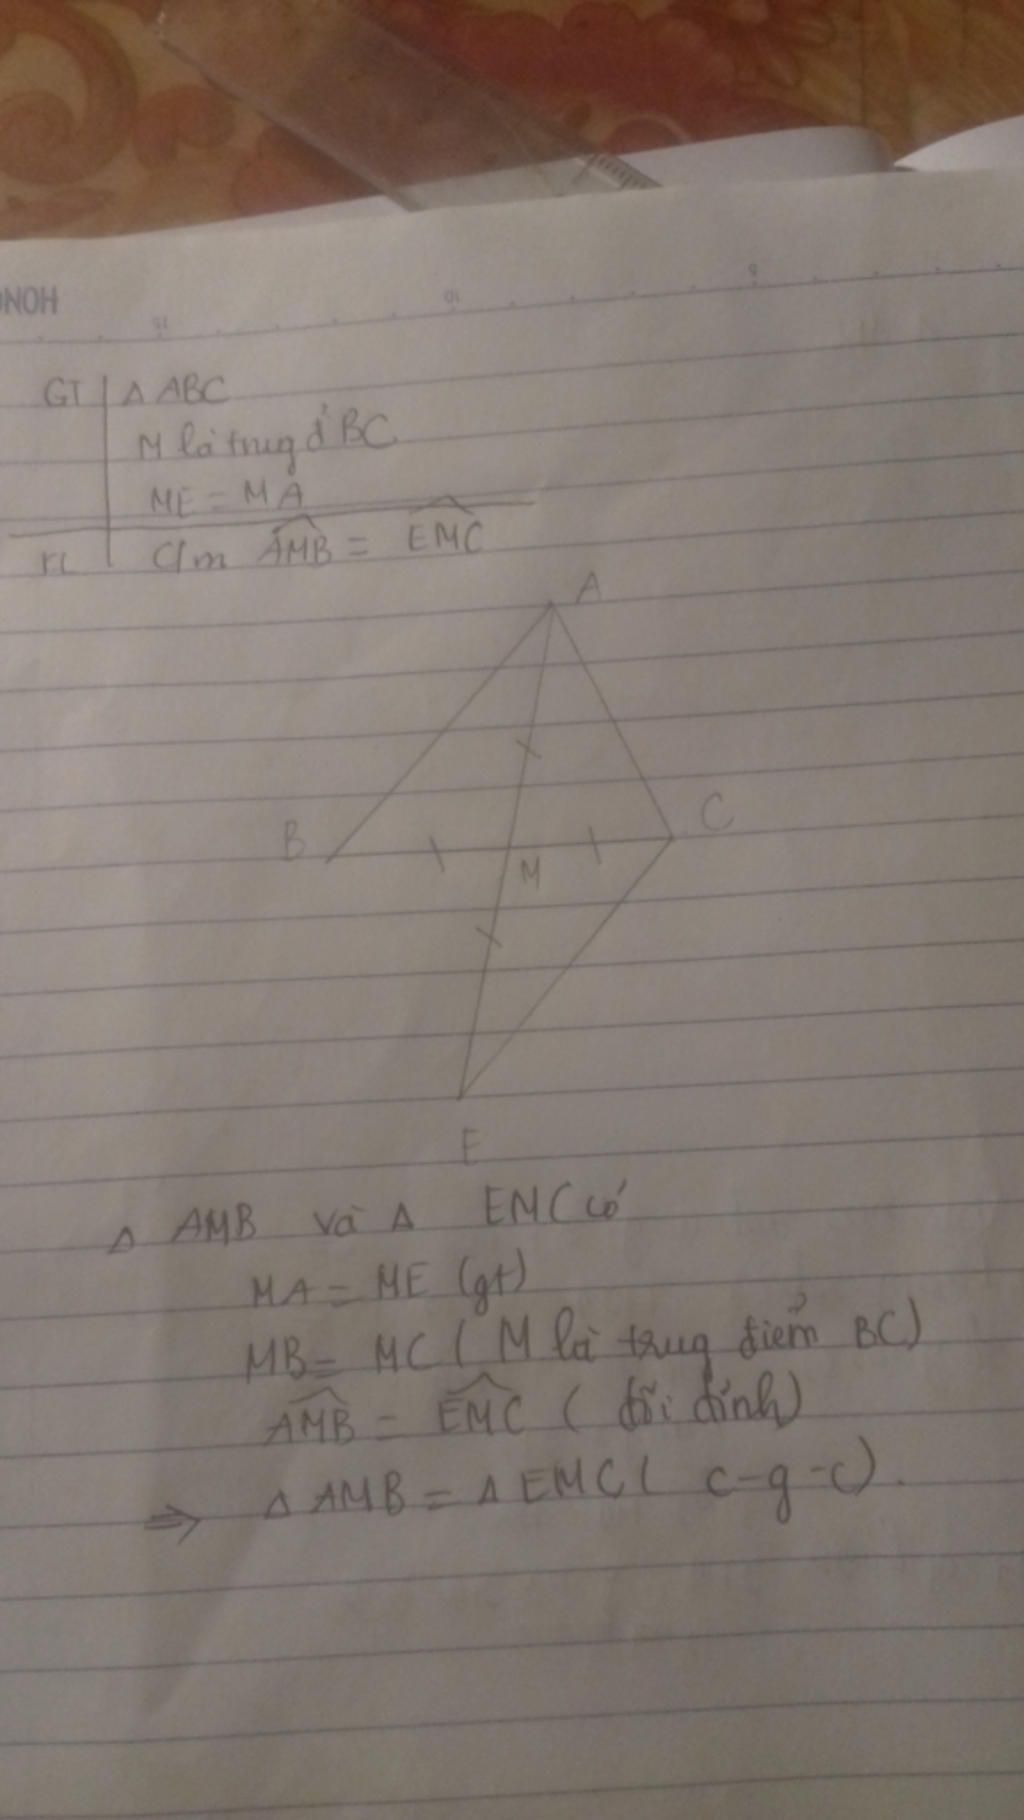 HONG
15 10 5
GT ∆ ABC
M là trug đ' BC
ME = MA
KL C/m AMB = EMC
A
B
C
M
E
∆ AMB và ∆ EMC có
MA = ME (gt)
MB = MC ( M là trug điểm BC)
AMB = EMC ( đối đỉnh)
⇒ ∆ AMB = ∆ EMC ( c-g-c).